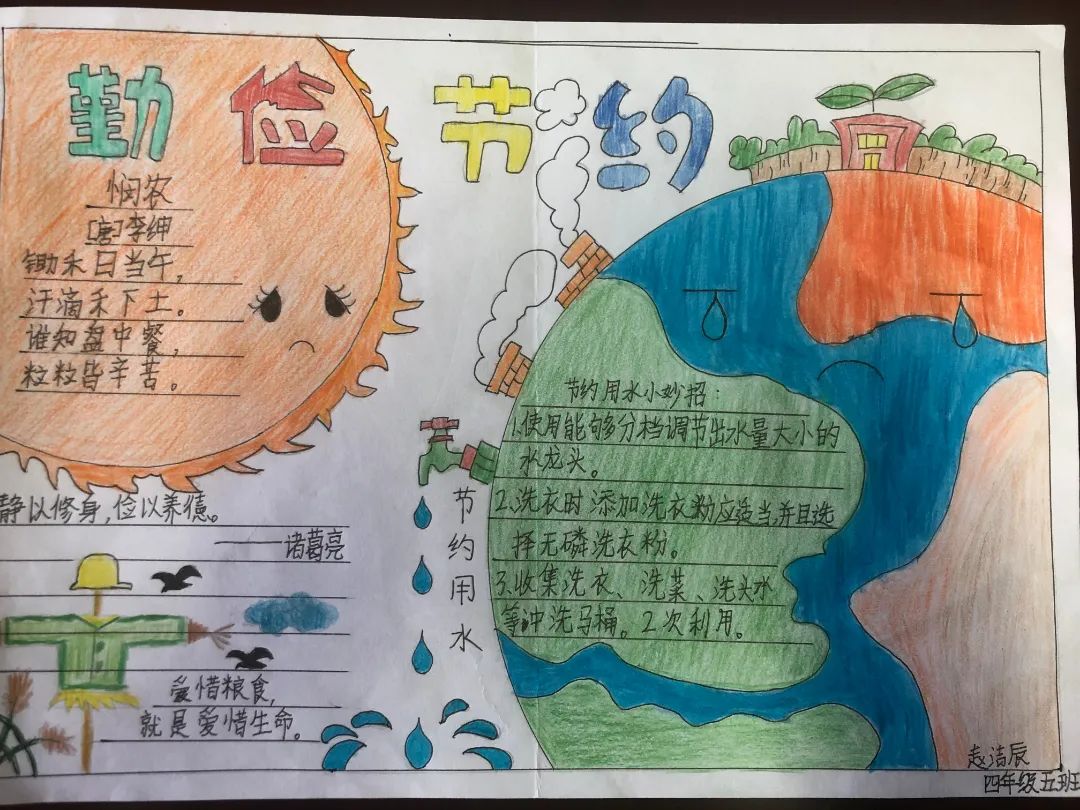 勤俭节约
悯农
[唐]李绅
锄禾日当午，
汗滴禾下土。
谁知盘中餐，
粒粒皆辛苦。
静以修身，俭以养德。
——诸葛亮
爱惜粮食，
就是爱惜生命。
节约用水
节约用水小妙招：
1.使用能够分档调节出水量大小的
水龙头。
2.洗衣时添加洗衣粉应适当，并且选
择无磷洗衣粉。
3.收集洗衣、洗菜、洗头水
等冲洗马桶。2次利用。
赵洁辰
四年级五班